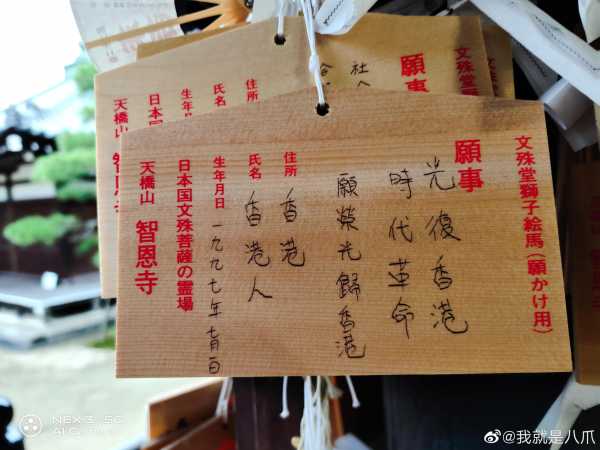 文殊堂獅子絵馬(願かけ用)
願事
光復香港
時代革命
願榮光歸香港
住所 香港
氏名 香港人
生年月日 一九九七年七月一日
日本国文殊菩薩の霊場
天橋山 智恩寺
文殊堂
願事
住所
氏名
生年
日本国
天橋山
NEX 3 5G
@我就是八爪